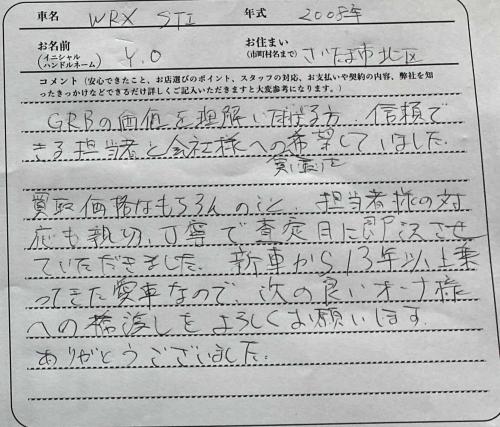 車名 WRX STI 年式 2008年
お名前 (イニシャル ハンドルネーム) Y.O お住まい (市町村名まで) さいたま市北区
コメント (安心できたこと、お店選びのポイント、スタッフの対応、お支払いや契約の内容、弊社を知
ったきっかけなどできるだけ詳しくご記入いただきますと大変参考になります。)
GRBの価値を理解いただける方、信頼で
きる担当者と会社様への希望していました。
買取価格なもちろんのこと、担当者様の対
応も親切、丁寧で査定日に即決させ
ていただきました。新車から13年以上乗
ってきた愛車なので、次の良いオーナ様
への橋渡しをよろしくお願いします。
ありがとうございました。